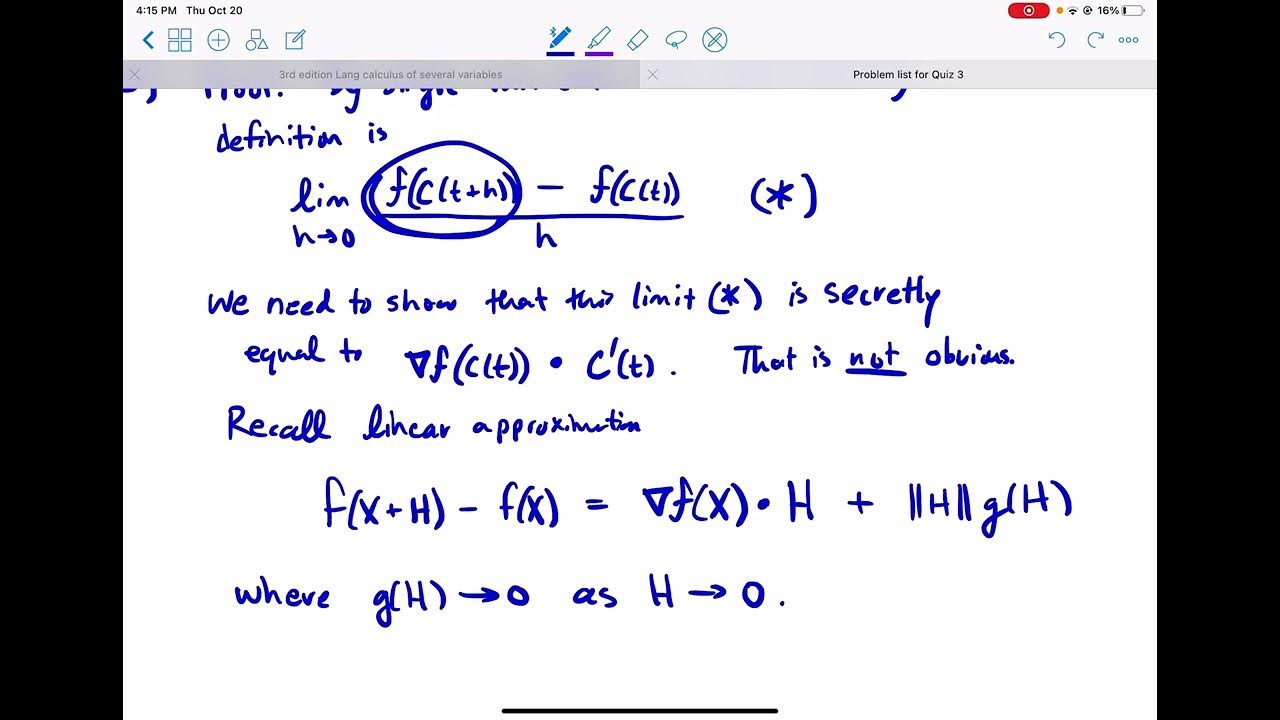 4:15 PM Thu Oct 20
16%
3rd edition Lang calculus of several variables
Problem list for Quiz 3
Proof. By single
definition is
lim h→0 f(C(t+h)) − f(C(t)) / h (*)
We need to show that this limit (*) is secretly
equal to ∇f(C(t)) • C'(t). That is not obvious.
Recall linear approximation
f(X+H) − f(X) = ∇f(X) • H + ||H|| g(H)
where g(H) → 0 as H → 0.